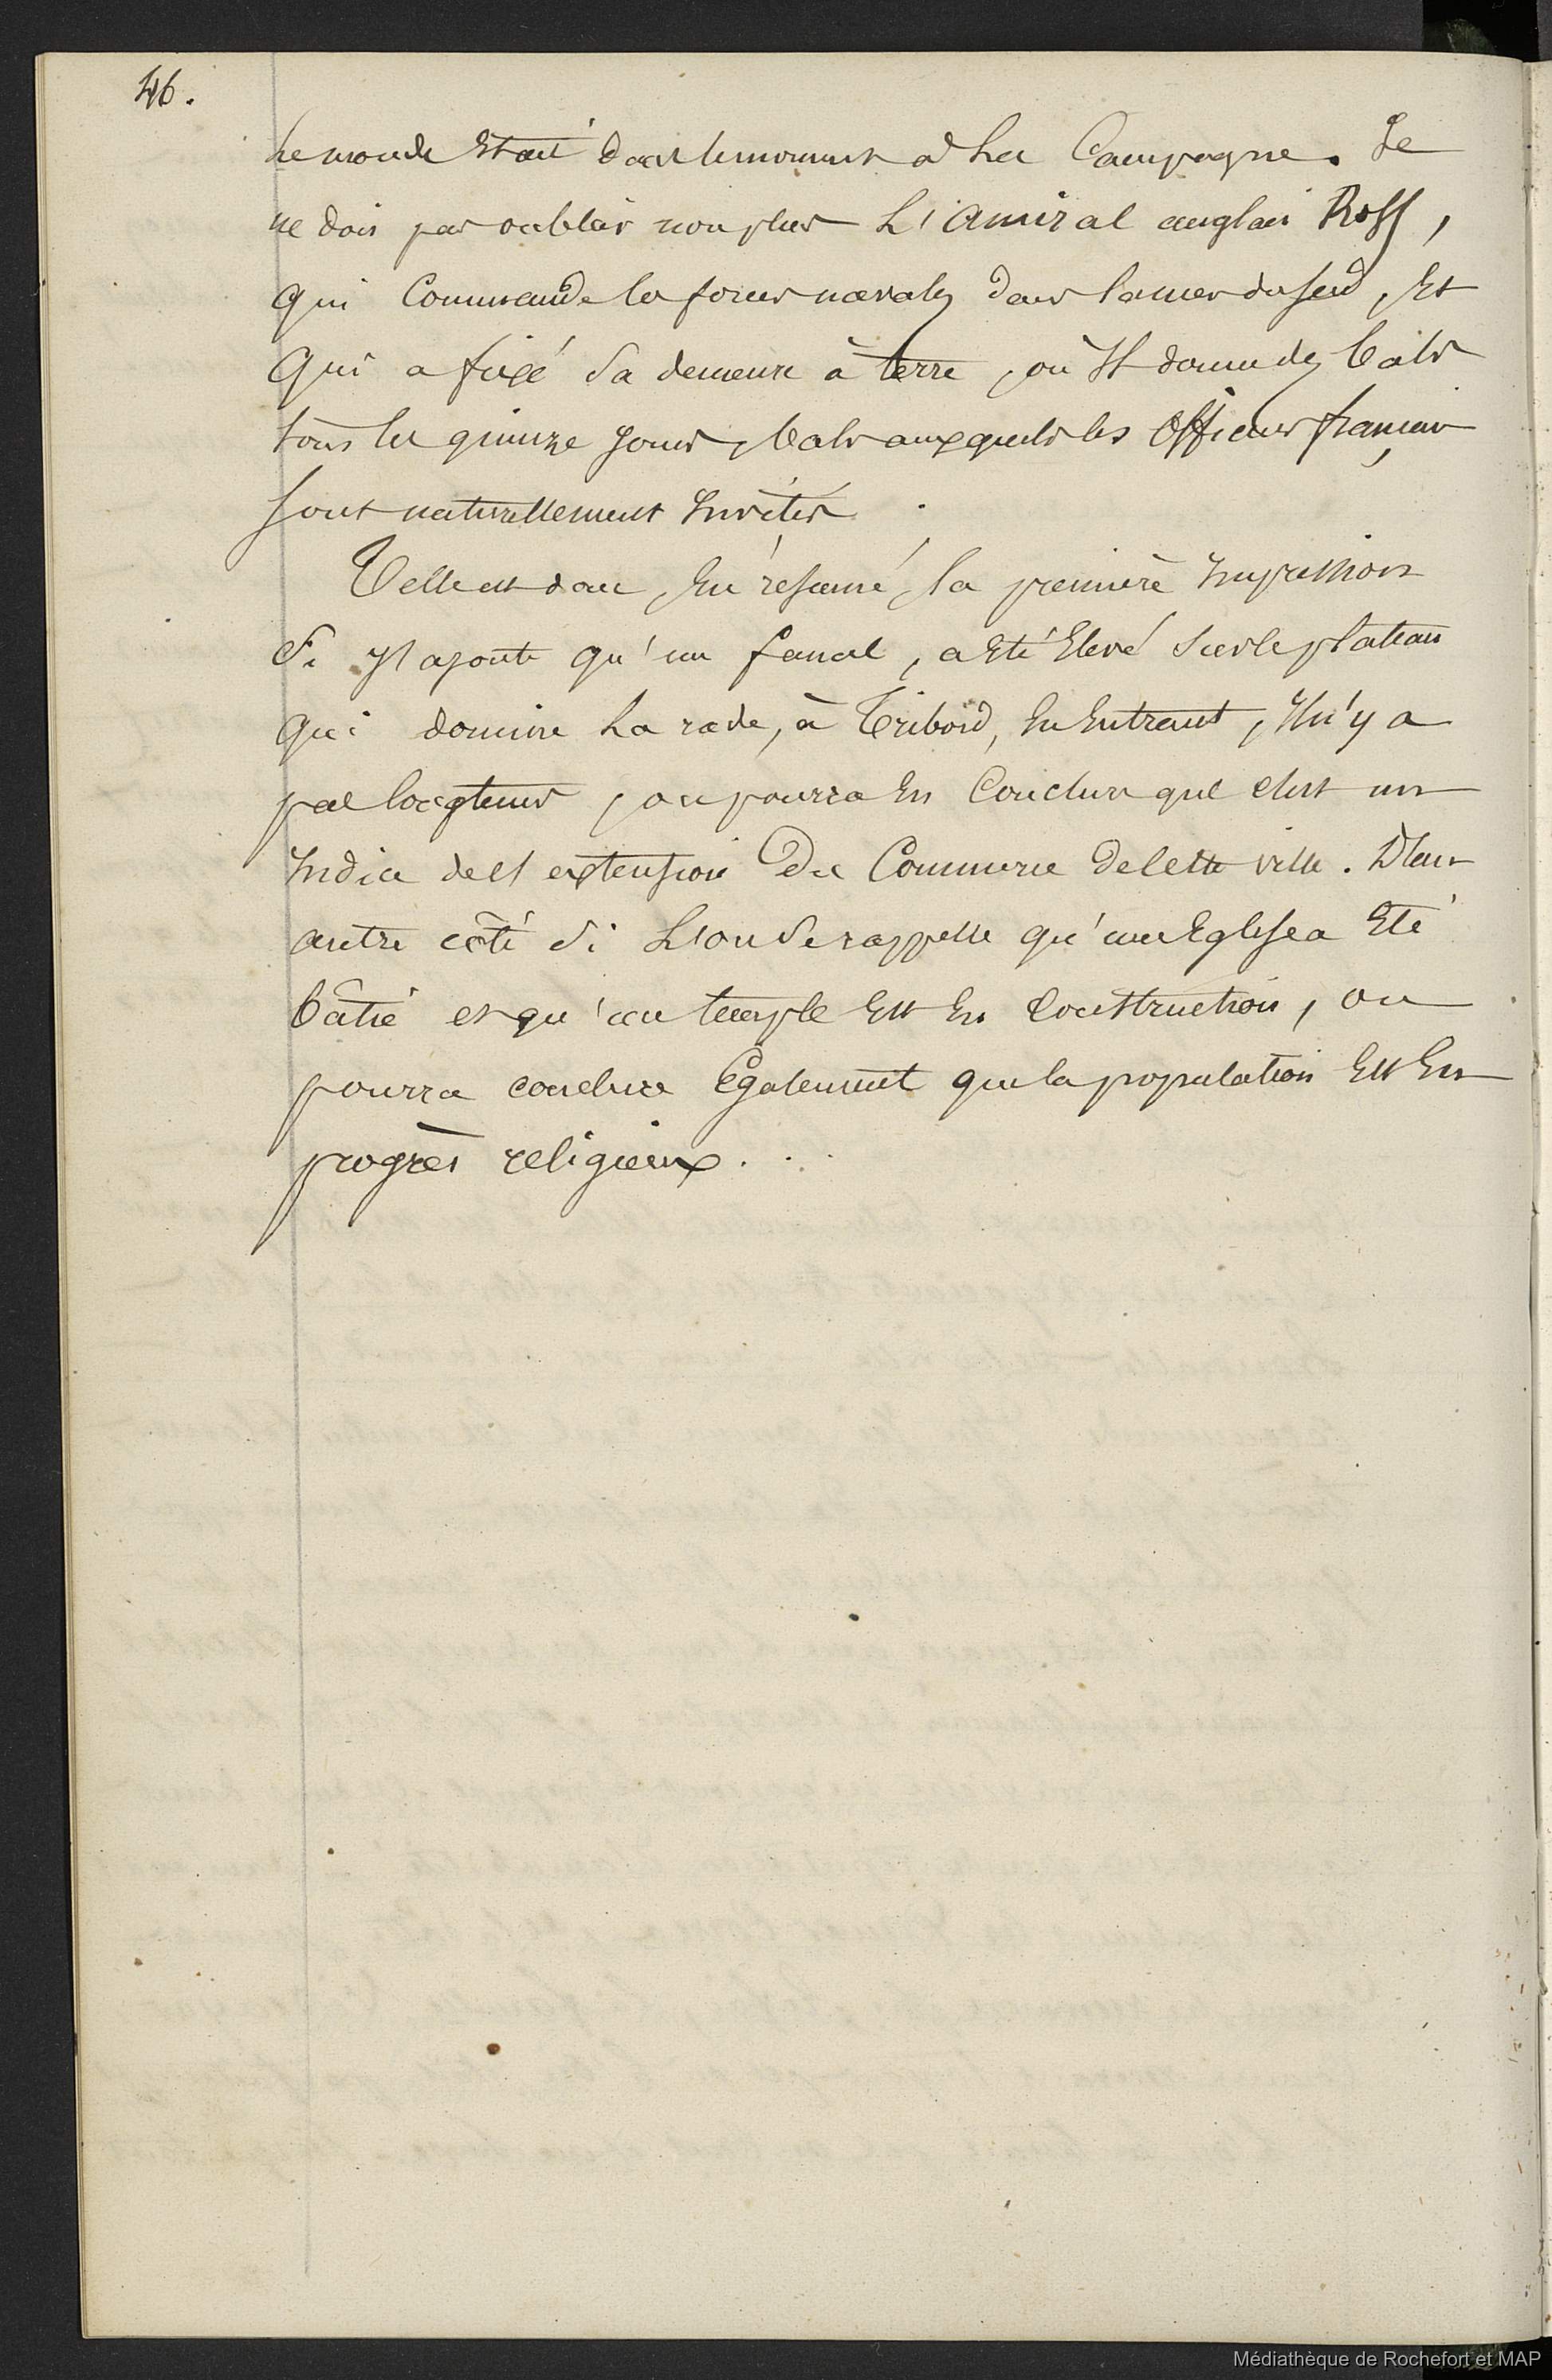 46.
Le monde était dans le moment à La Campagne. Je
ne dois pas oublier non plus L'Amiral anglais Ross,
qui Commande les forces navales dans la mer du Sud, Et
qui a fixé Sa demeure à terre, où Il donne des bals
tous les quinze Jours, bals auxquels les Officiers français
sont naturellement Invités.
Telle est donc, En résumé, la première Impression
Si J'ajoute qu'un fanal, a Eté Elevé Sur le plateau
qui domine La rade, à Tribord, En Entrant, Il n'y a
pas longtemps, on pourra En Conclure que c'est un
Indice de l'extension Du Commerce de cette ville. D'un
autre côté Si L'on Se rappelle qu'une Eglise a Eté
bâtie et qu'un temple Est En Construction, on
pourra conclure Egalement que la population Est En
progrès religieux...
Médiathèque de Rochefort et MAP